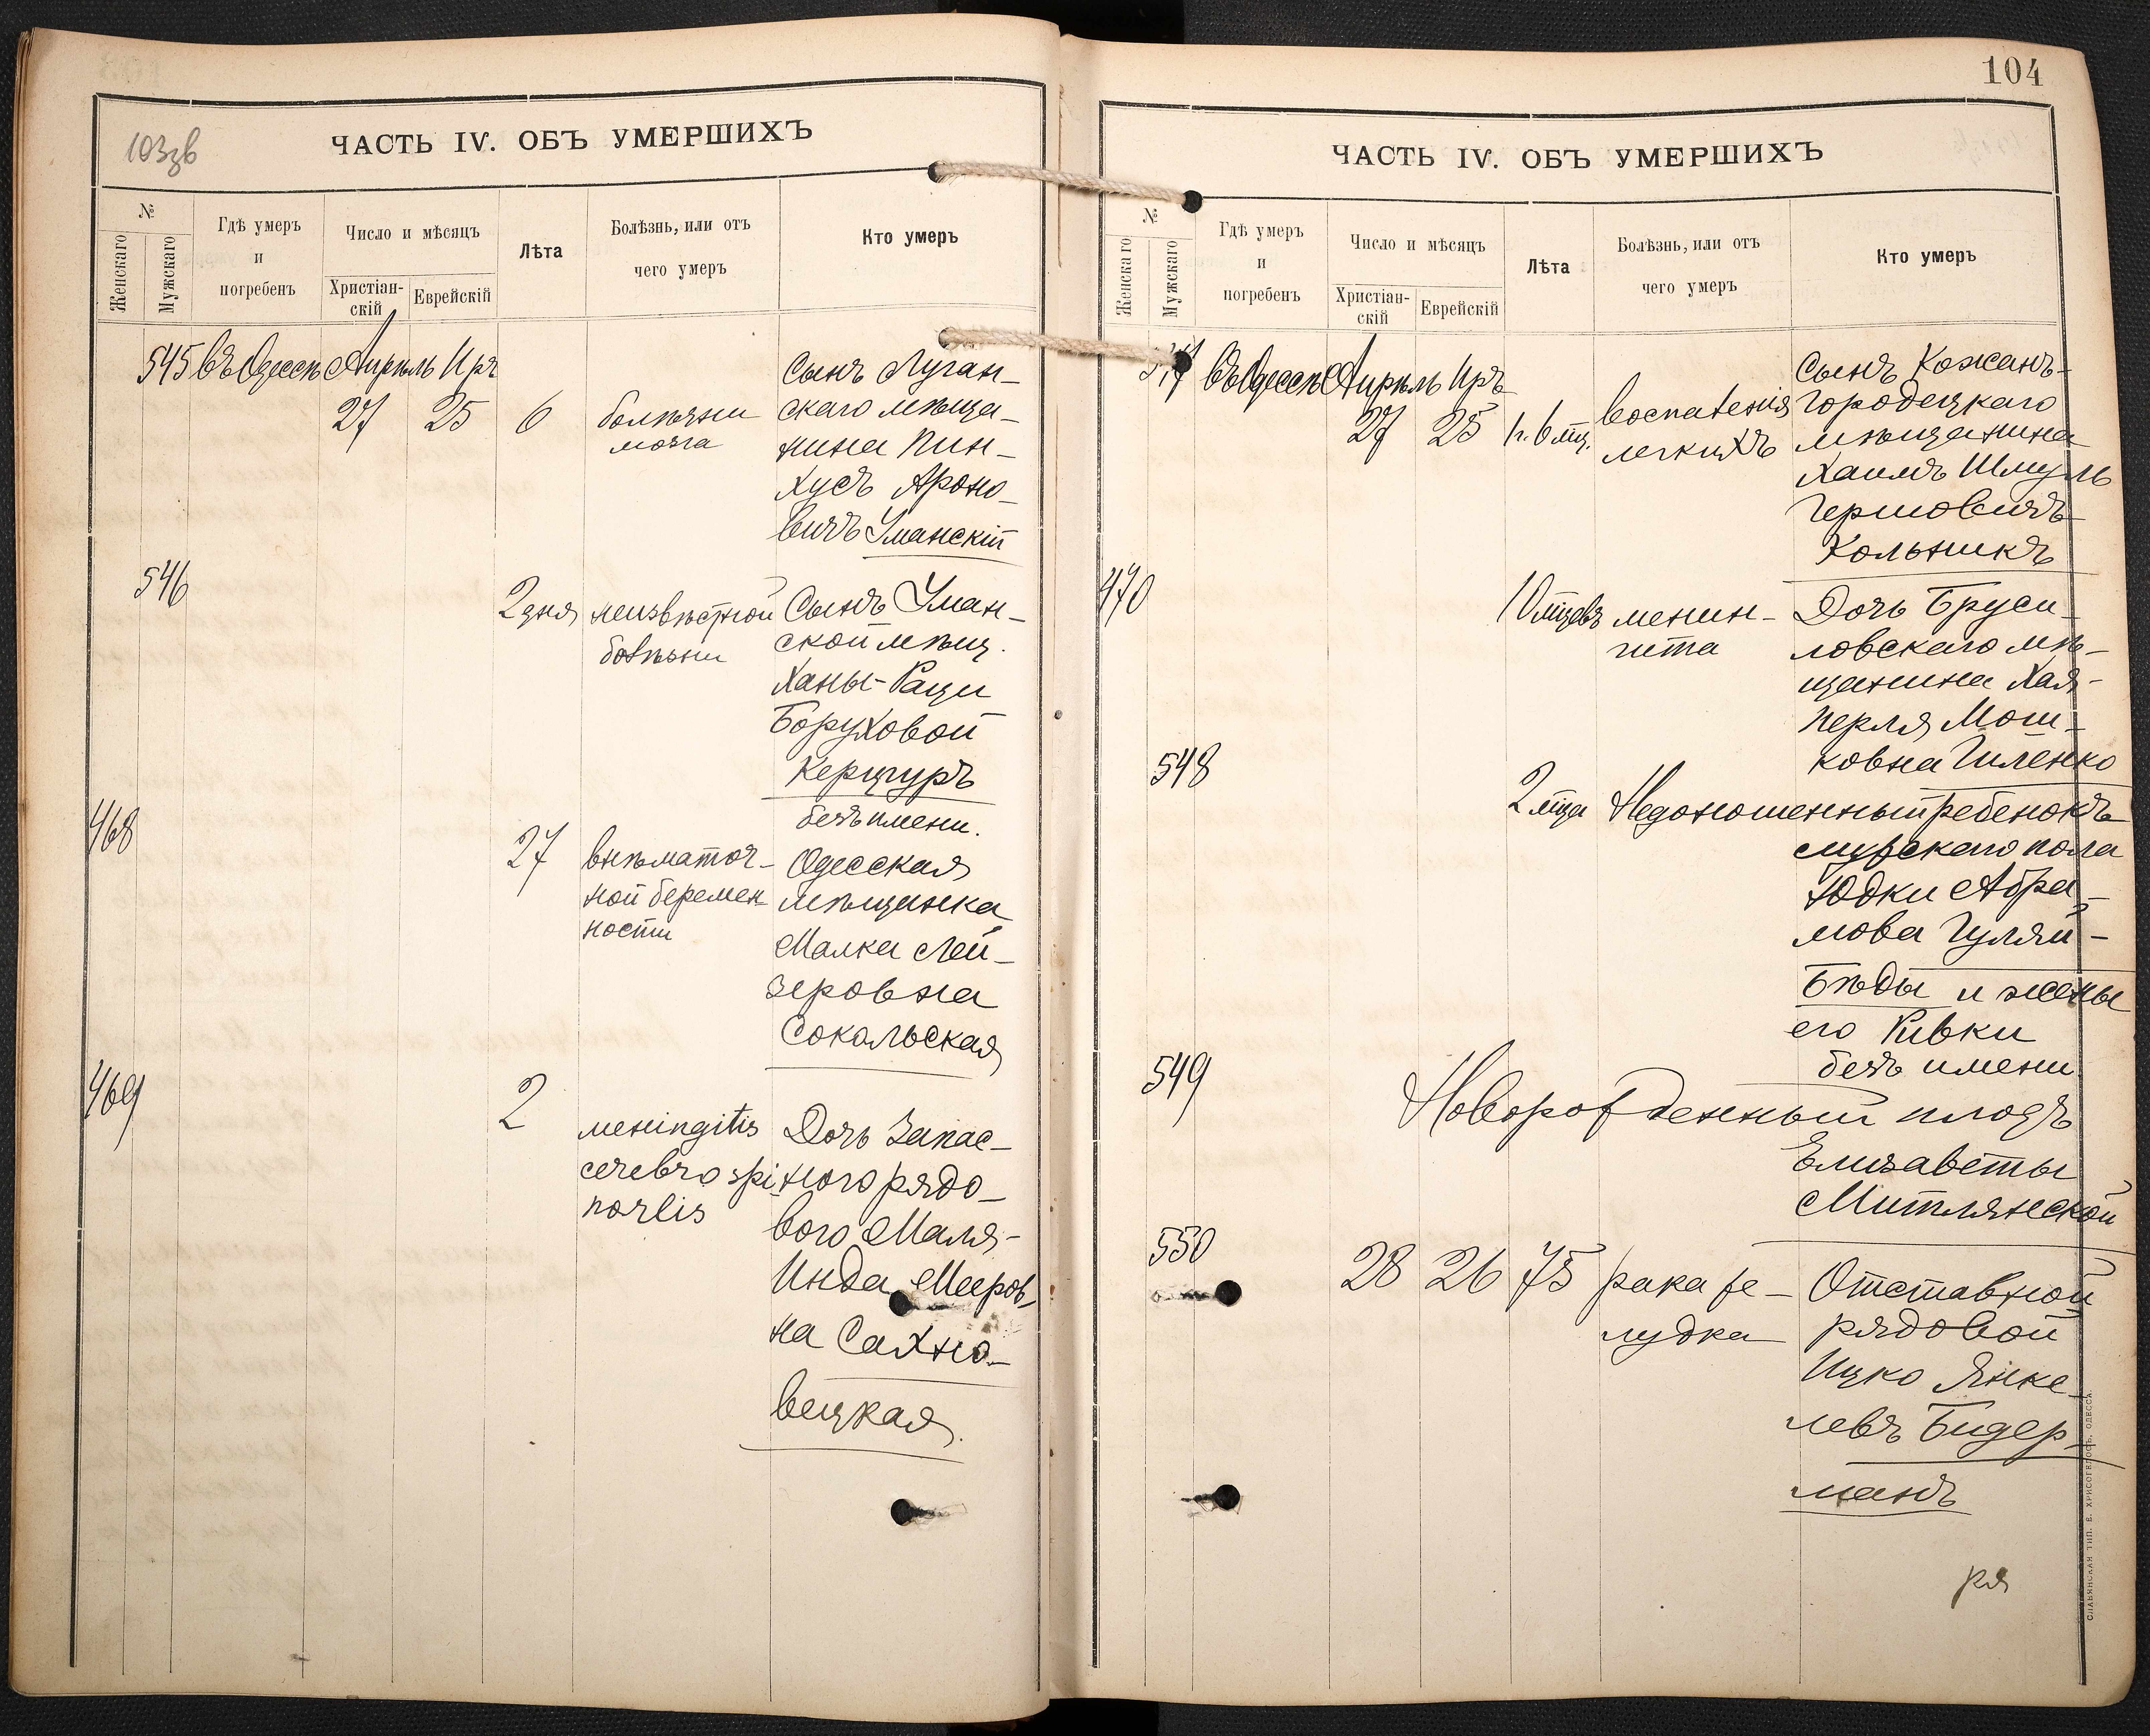 103зв
ЧАСТЬ IV. ОБЪ УМЕРШИХЪ
№
Женскаго
Мужскаго
Гдѣ умеръ
и
погребенъ
Число и мѣсяцъ
Христіан-
скій
Еврейскій
Лѣта
Болѣзнь, или отъ
чего умеръ
Кто умеръ
545 въ Одессѣ Апрѣль Иръ
27 25 6
болѣзни
мозга
Сынъ Луган-
скаго мѣща-
нина Пин-
хусъ Ароно-
вичъ Уманскій
546
2 дня
неизвѣстной
болѣзни
Сынъ Уман-
ской мѣщ.
Ханы-Раци
Боруховой
Керцгуръ
безъ имени.
468
27
внѣматоч-
ной беремен-
ности
Одесская
мѣщанка
Малка Лей-
зеровна
Сокальская
469
2
меningitis
cerebrospi-
narlis
Дочь Запас-
ного рядо-
вого Маля-
Инда Мееров-
на Сахно-
вецкая.
104
ЧАСТЬ IV. ОБЪ УМЕРШИХЪ
№
Женскаго
Мужскаго
Гдѣ умеръ
и
погребенъ
Число и мѣсяцъ
Христіан-
скій
Еврейскій
Лѣта
Болѣзнь, или отъ
чего умеръ
Кто умеръ
547 въ Одессѣ Апрѣль Иръ
27 25 1 г. 6 мц.
воспаленія
легкихъ
Сынъ Кожанъ-
городецкаго
мѣщанина
Хаимъ Шмуль
Гершовичъ
Кольникъ
470
10 мцевъ
менин-
гита
Дочь Бруси-
ловскаго мѣ-
щанина Хая-
Перля Мош-
ковна Гиленко
548
2 мца
Недоношенный ребенокъ
мужскаго пола
Юдки Абра-
мова Гуляй-
Бѣды и жены
его Ривки
безъ имени
549
Новорожденный плодъ
Елизаветы
Митлянской
550
28 26 75
рака же-
лудка
Отставной
рядовой
Ицко Янке-
левъ Бидер-
манъ
ря
СЛАВЯНСКАЯ ТИП. Е. ХРИСОГЕЛОСЪ, ОДЕССА.